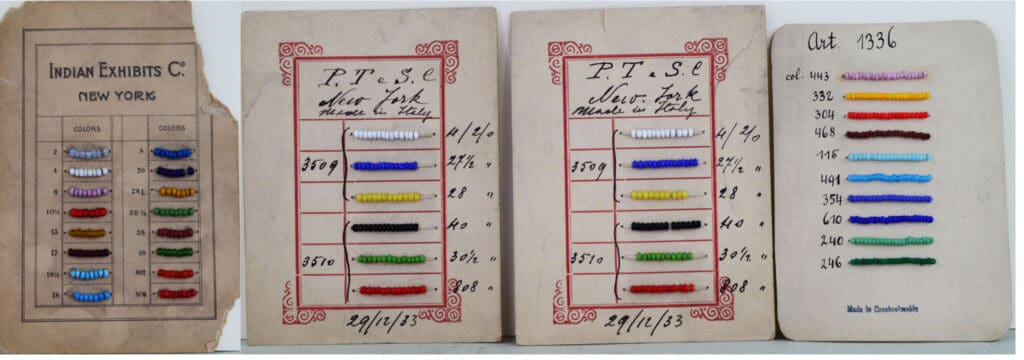 INDIAN EXHIBITS Co.
NEW YORK
COLORS COLORS
2 8
4 20
6 28L
10½ 30½
13 38
17 40
18½ 802
18 808
P. T e S. C
New York
made in Italy
4/2/0
3509 27½ "
28 "
40 "
3510 30½ "
808 "
29/12/33
P. T e S. C
New York
made in Italy
4/2/0
3509 27½ "
28 "
40 "
3510 30½ "
808 "
29/12/33
Art. 1336
col. 443
332
304
468
115
491
354
610
240
246
Made in Czechoslovakia